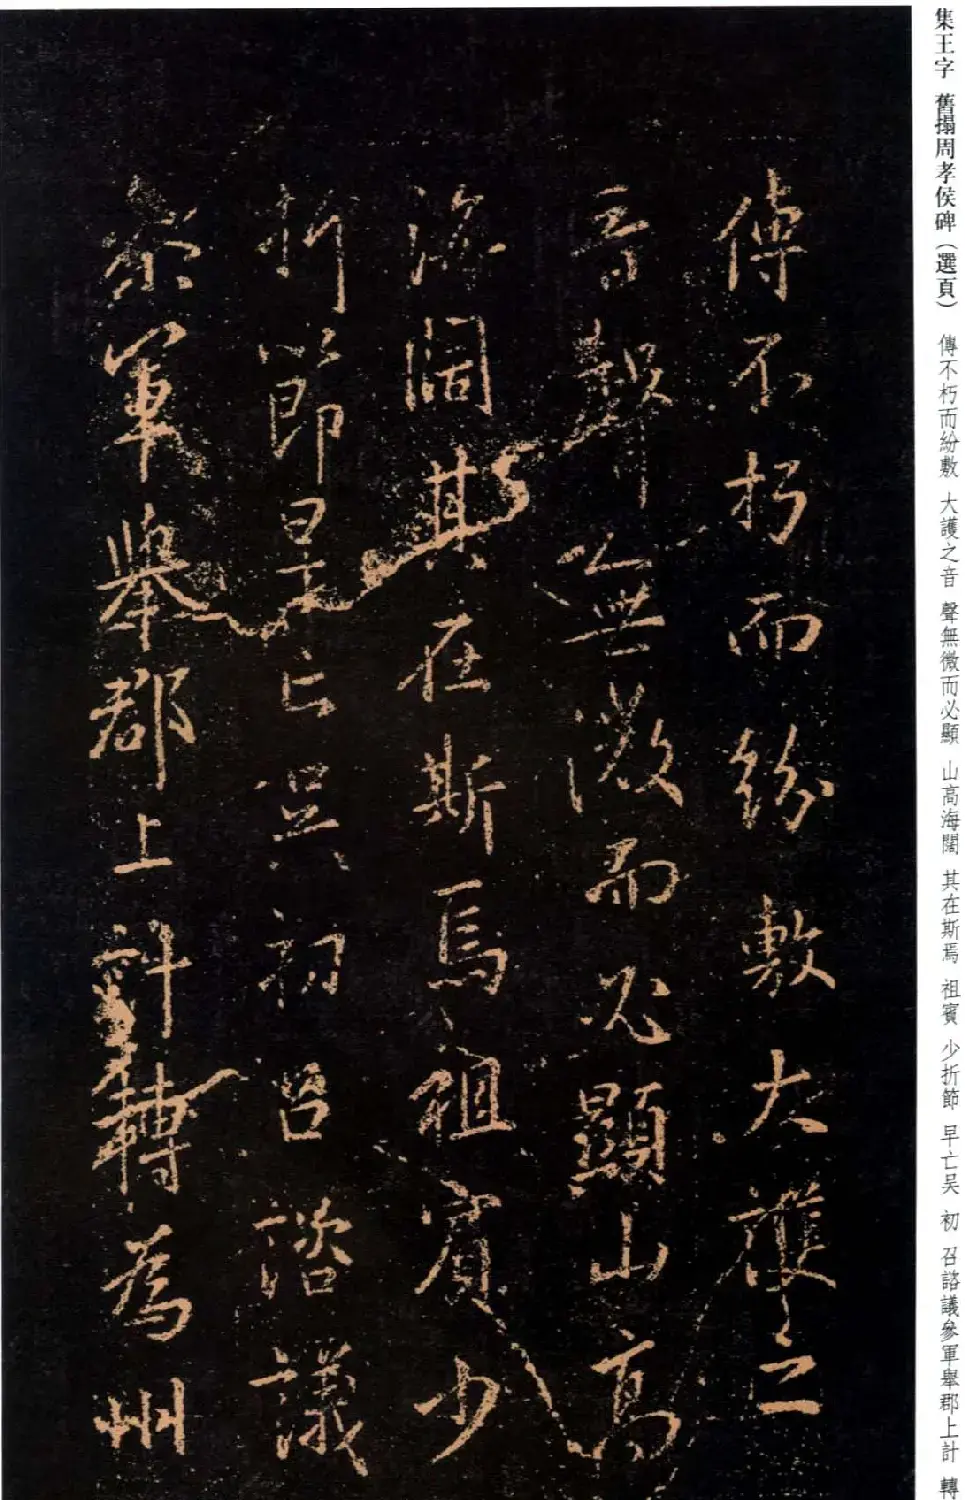 集王字 舊搨周孝侯碑（選頁） 傳不朽而紛敷 大護之音 聲無微而必顯 山高海闊 其在斯焉 祖賓 少折節 早亡吴 初 召諮議參軍舉郡上計 轉
傳不朽而紛敷大護之
音聲無微而必顯山高
海闊其在斯焉祖賓少
折節早亡吴初召諮議
參軍舉郡上計轉為州